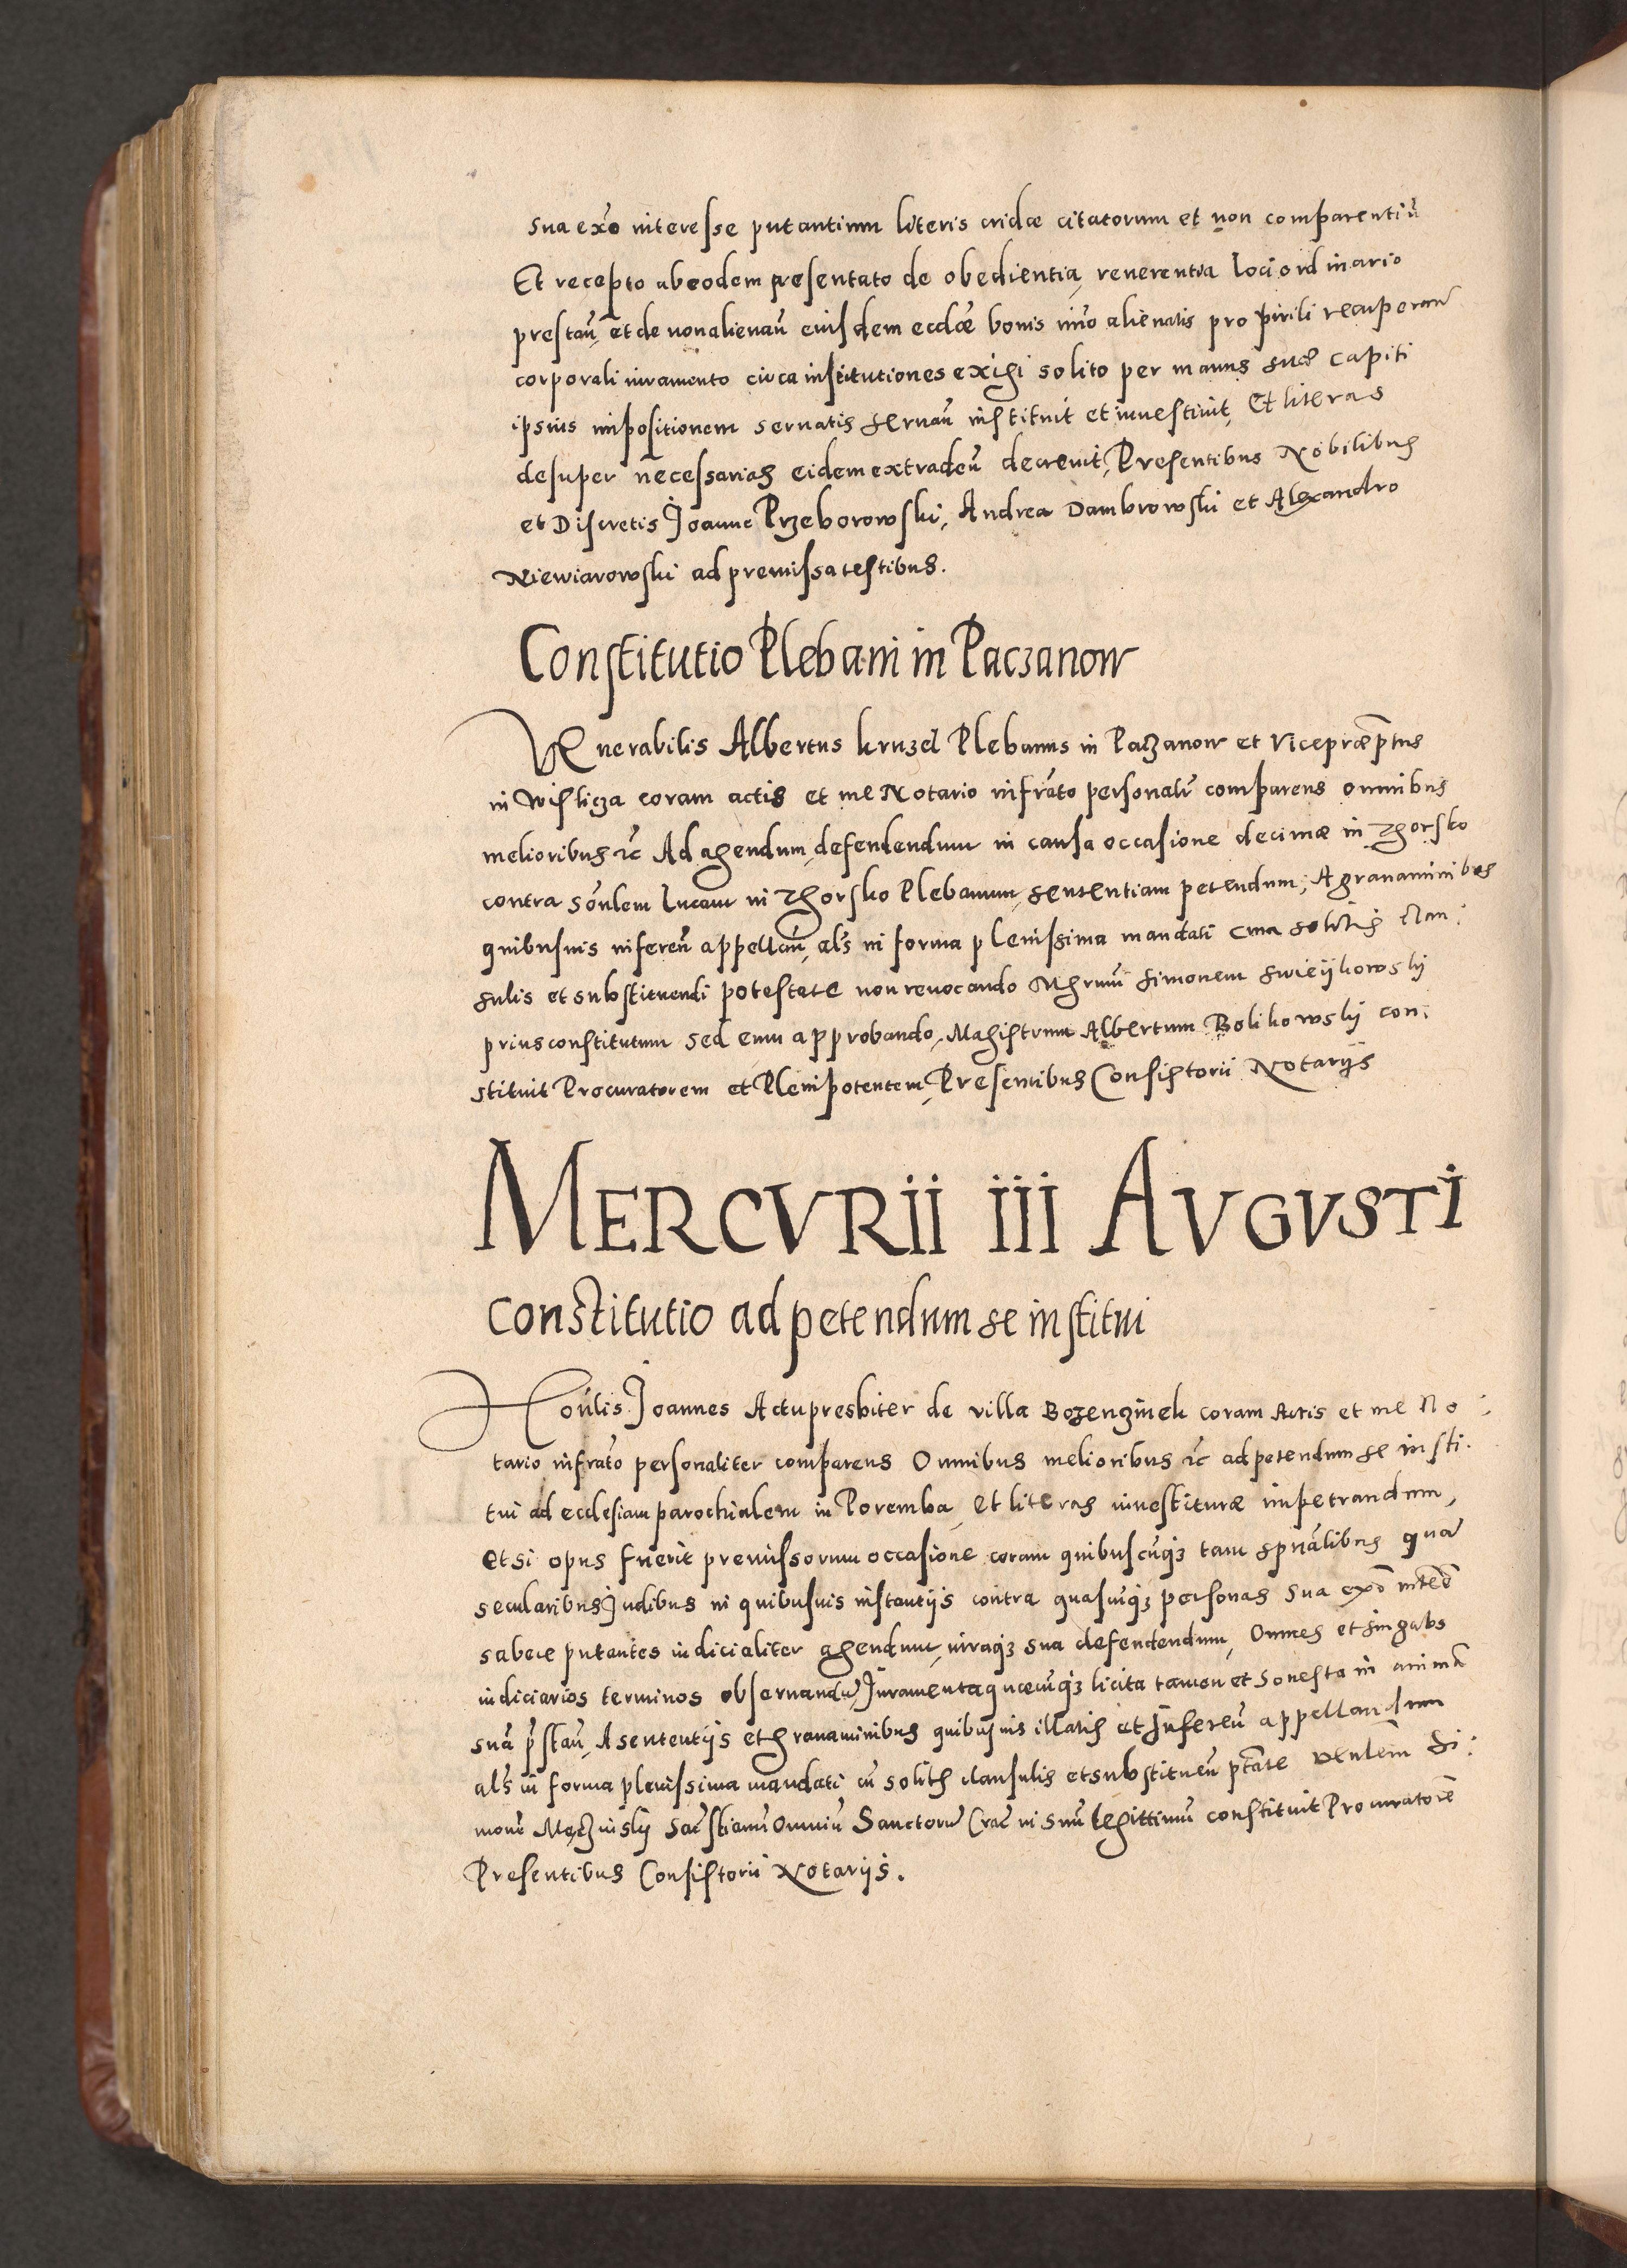 sua exñо interesse putantium literis cridae citatorum et non comparentiū
Et recepto ab eodem presentato de obedientia, reverentia loci ordinario
prestañ, et de non alienañ eiusdem eccliae bonis imo alienatis pro pirili recuperañ
corporali iuramento circa institutiones exigi solito per manus suae capiti
ipsius impositionem servatis servañ instituit et investivit, Et literas
desuper necessarias eidem extradeñ decrevit, Presentibus Nobilibus
et Discretis Joanne Przeborowski, Andrea Dambrowski et Alexandro
Niewiarowski ad premissa testibus.
Constitutio Plebani in Paczanow
Venerabilis Albertus Kruzel Plebanus in Paczanow et Vicepraeptus
in Wislicza coram actis et me Notario infrato personalr comparens omnibus
melioribus ꝛc Ad agendum, defendendum in causa occasione decimae in Zhorsko
contra honlem Lucam in Zhorsko Plebanum, sententiam petendum, A gravaminibus
quibusvis infereñ appellañ, als in forma plenissima mandati cum solitis clau:
sulis et substituendi potestate non revocando Mgrum Simonem Swieykowsky
prius constitutum sed eum approbando, Magistrum Albertum Bolikowsky con:
stituit Procuratorem et Plenipotentem, Presentibus Consistorii Notariis
MERCVRii iii AVGVSTi
Constitutio ad petendum se institui
Honlis Joannes Actu presbiter de villa Bozenczineh coram Actis et me No:
tario infrato personaliter comparens Omnibus melioribus ꝛc ad petendum se insti.
tui ad ecclesiam parochialem in Poremba, et literas investiturae impetrandum,
et si opus fuerit premissorum occasione coram quibuscuqꝫ tam spualibus qua
secularibus Judibus in quibusvis instantiis contra quasvisqꝫ personas sua exo intee
habere putantes iudicialiter agendum, iuraqꝫ sua defendendum, Omnes et singulos
iudiciarios terminos observandu, Juramenta quaecuqꝫ licita tamen et honesta in anima
sua pstañ, A sententiis et gravaminibus quibusvis illatis et Infereñ appellandum
als in forma plenissima mandati cu solitis clausulis et substitueñ ptate Venlem Si:
mone Maczinsky Sacristianu Omniu Sanctoru Crac in suu legittimu constituit Procuratore
Presentibus Consistorii Notariis.